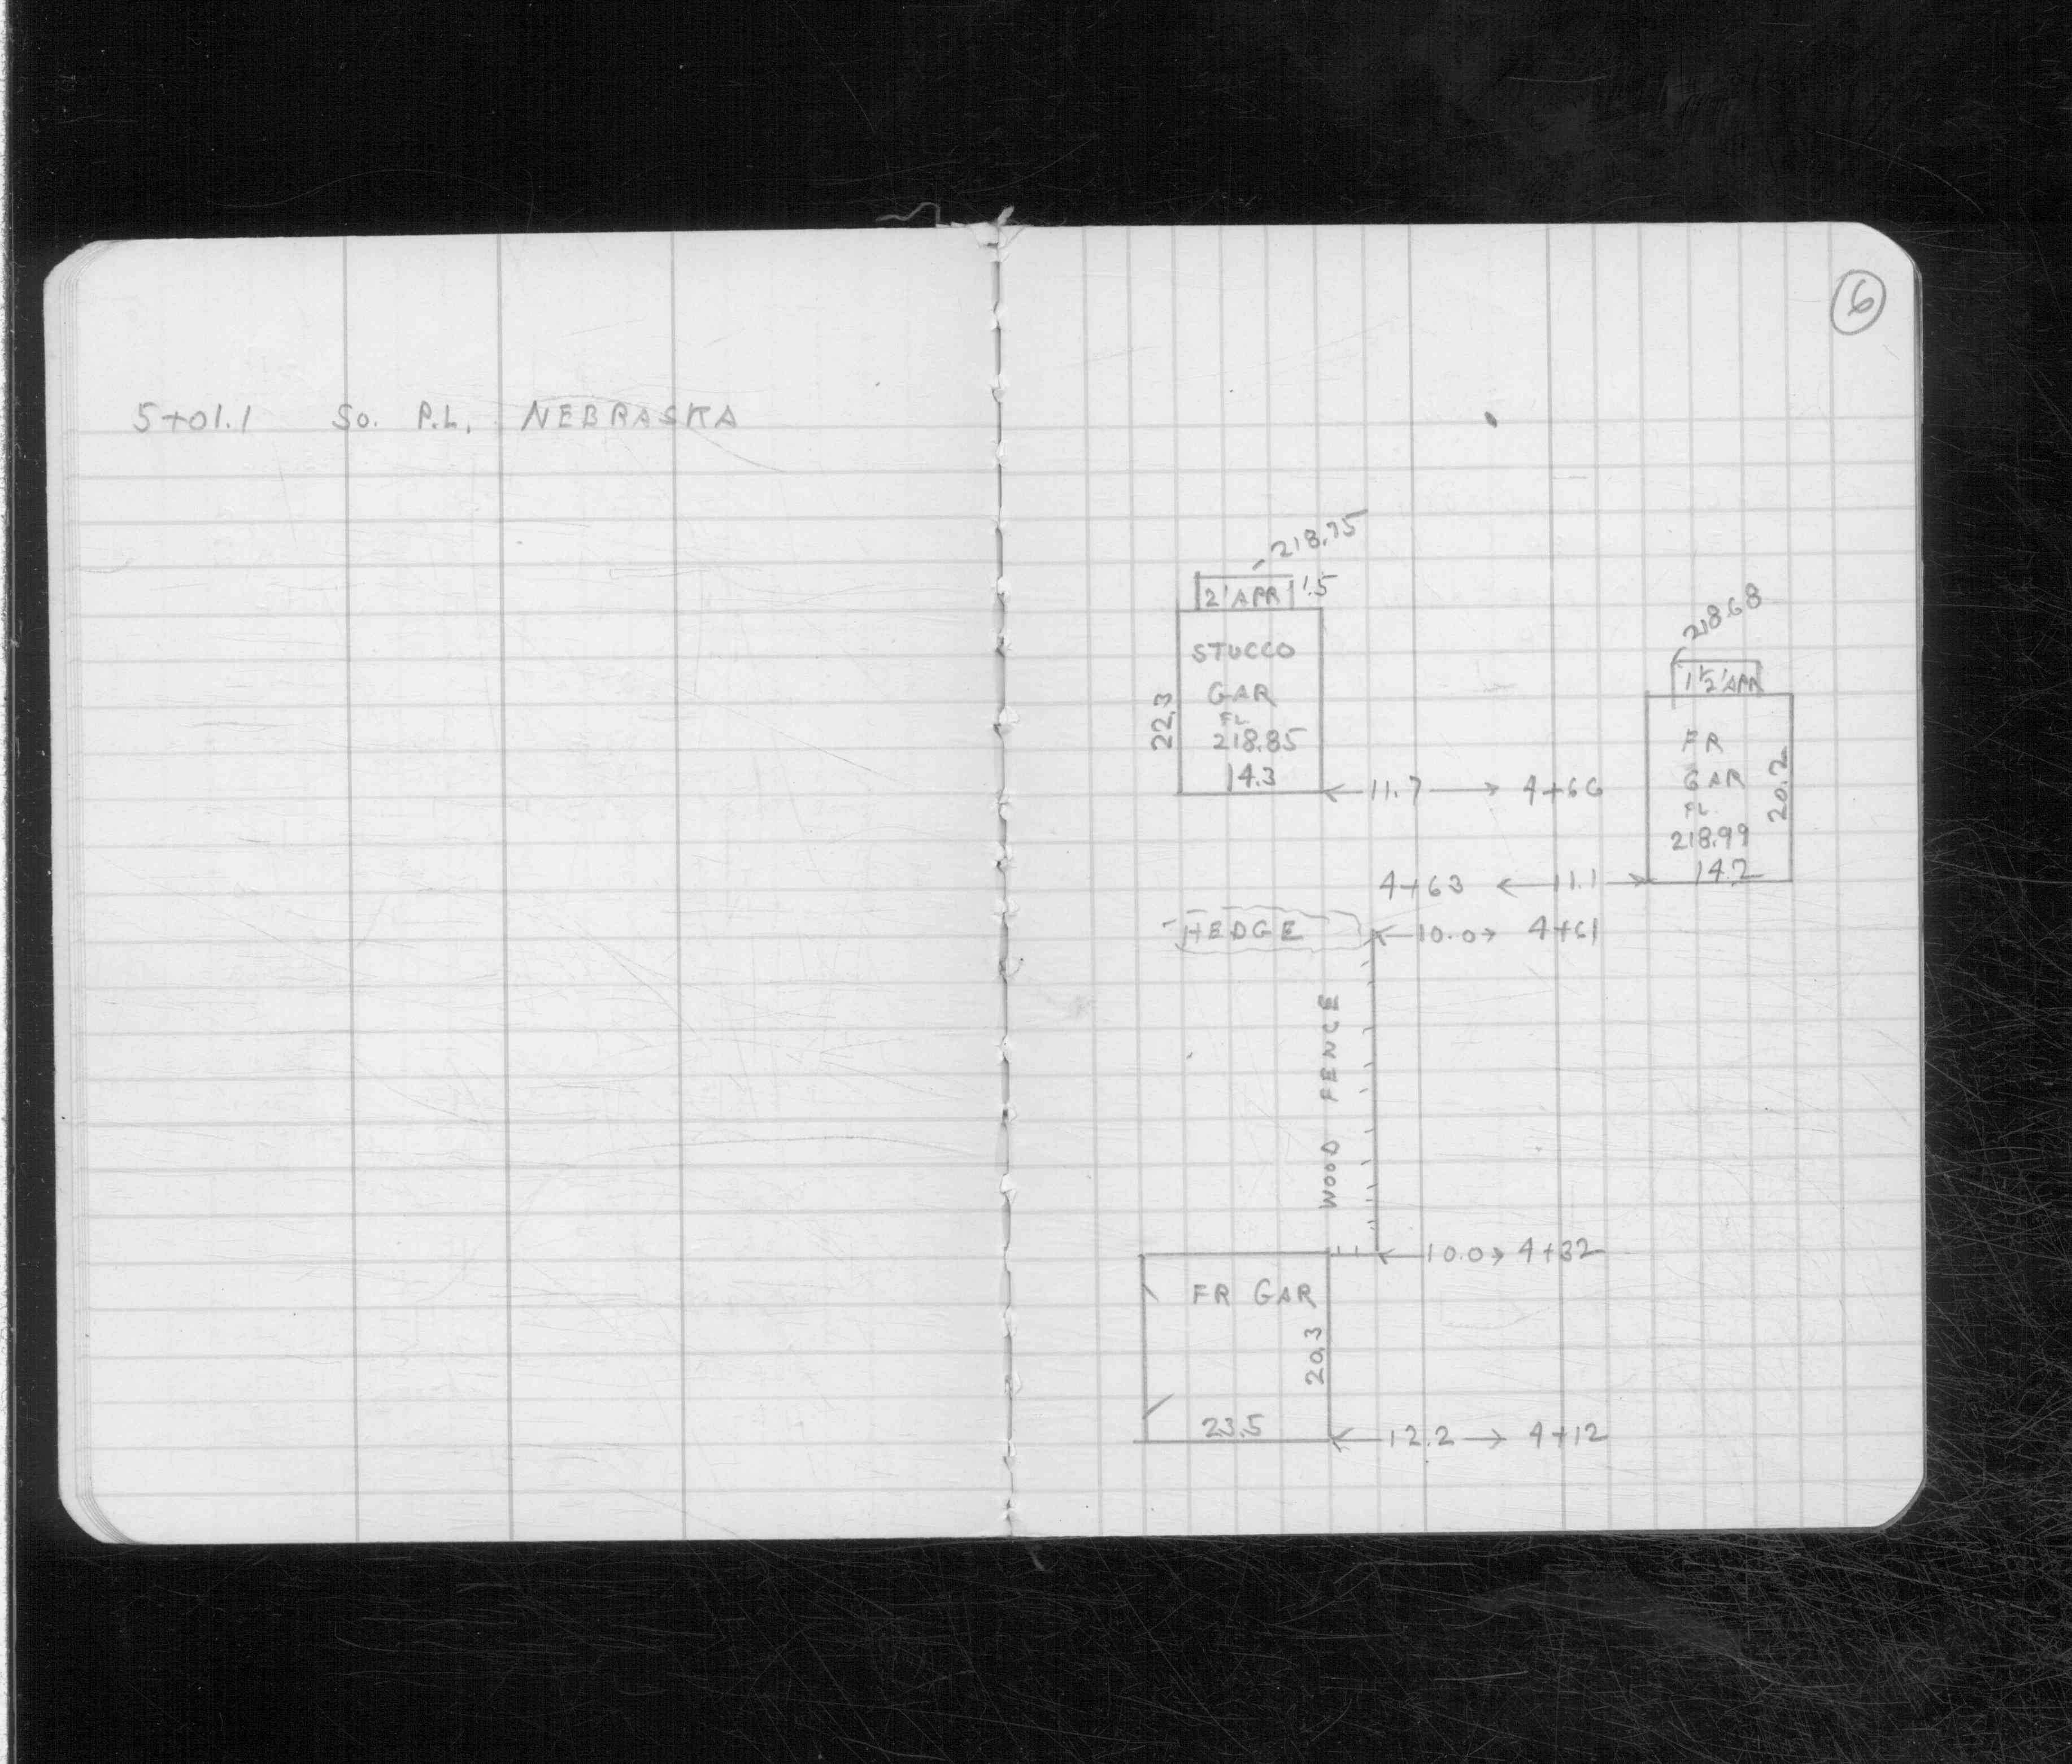 6
5+01.1 So. P.L. NEBRASKA
218.75
2' APR 1.5
218.68
1 1/2' APR
STUCCO
GAR
FL
218.85
14.3
22.3
←11.7→ 4+66
FR
GAR
FL.
218.99
14.2
20.2
4+63 ←11.1→
HEDGE ←10.0→ 4+61
WOOD FENCE
←10.0→ 4+32
FR GAR
20.3
23.5
←12.2→ 4+12